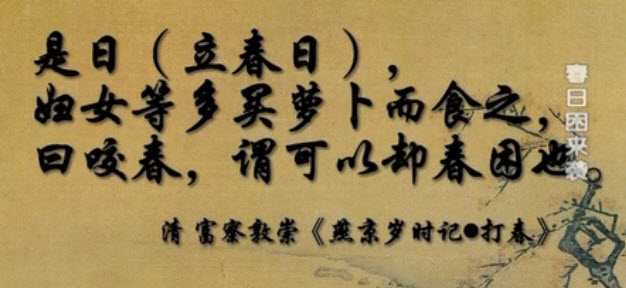 是日（立春日），
妇女等多买萝卜而食之，
曰咬春，谓可以却春困也。
清 富察敦崇《燕京岁时记●打春》
春日困来袭